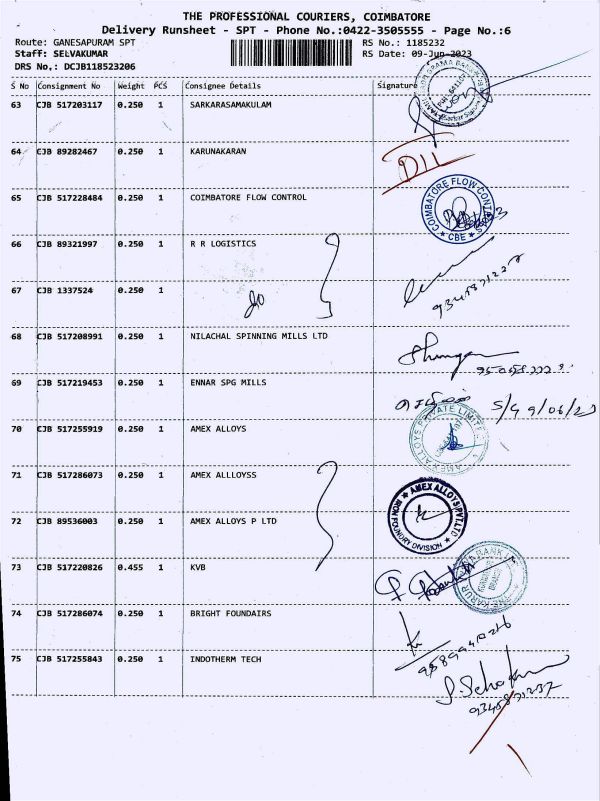 THE PROFESSIONAL COURIERS, COIMBATORE
Delivery Runsheet - SPT - Phone No.:0422-3505555 - Page No.:6
Route: GANESAPURAM SPT RS No.: 1185232
Staff: SELVAKUMAR RS Date: 09-Jun-2023
DRS No.: DCJB118523206
S No Consignment No Weight PCS Consignee Details Signature
63 CJB 517203117 0.250 1 SARKARASAMAKULAM
64 CJB 89282467 0.250 1 KARUNAKARAN DIL
65 CJB 517228484 0.250 1 COIMBATORE FLOW CONTROL
COIMBATORE FLOW CONTROLS
★ CBE ★
66 CJB 89321997 0.250 1 R R LOGISTICS
67 CJB 1337524 0.250 1
68 CJB 517208991 0.250 1 NILACHAL SPINNING MILLS LTD
69 CJB 517219453 0.250 1 ENNAR SPG MILLS
9/06/23
70 CJB 517255919 0.250 1 AMEX ALLOYS
AMEX ALLOYS PRIVATE LIMITED
71 CJB 517286073 0.250 1 AMEX ALLLOYSS
★ AMEX ALLOYS PVT.LTD ★
IRON FOUNDRY DIVISION
72 CJB 89536003 0.250 1 AMEX ALLOYS P LTD
73 CJB 517220826 0.455 1 KVB
74 CJB 517286074 0.250 1 BRIGHT FOUNDAIRS
75 CJB 517255843 0.250 1 INDOTHERM TECH